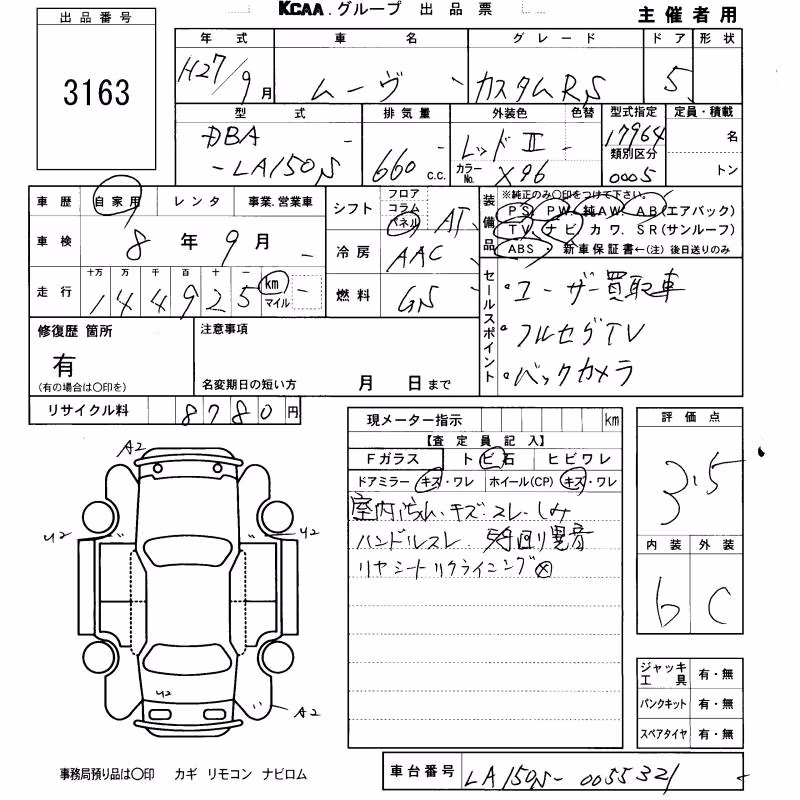 KCAA.グループ 出品票
主催者用
出品番号
3163
年式 車名 グレード ドア 形状
H27/9月 ムーヴ カスタムRS 5
型式 排気量 外装色 色替 型式指定 定員・積載
DBA-LA150S 660 c.c. レッドII 17964 名
カラーNo. X96 類別区分 0005 トン
車歴 自家用 レンタ 事業.営業車
車検 8年9月
十万 万 千 百 十 一
走行 144925 km マイル
シフト フロア コラム パネル AT
冷房 AAC
燃料 GS
装備品 ※純正のみ〇印をつけて下さい。
PS PW 純AW. AB(エアバック)
TV. ナビ カワ. SR(サンルーフ)
ABS・ 新車保証書←(注) 後日送りのみ
セールスポイント
・ユーザー買取車
・フルセグTV
・バックカメラ
修復歴 箇所
有
(有の場合は〇印を)
注意事項
名変期日の短い方 月 日まで
リサイクル料 8780円
現メーター指示 km
【査定員記入】
Fガラス トビ石 ヒビワレ
ドアミラー キズ・ワレ ホイール(CP) キズ・ワレ
室内汚れ.キズ.スレ.しみ
ハンドルスレ. 回り異音
リヤシートリクライニング×
評価点
3.5
内装 外装
b C
ジャッキ工具 有・無
パンクキット 有・無
スペアタイヤ 有・無
A2
U2
U2
U2
A2
事務局預り品は〇印 カギ リモコン ナビロム
車台番号 LA150S-0055321